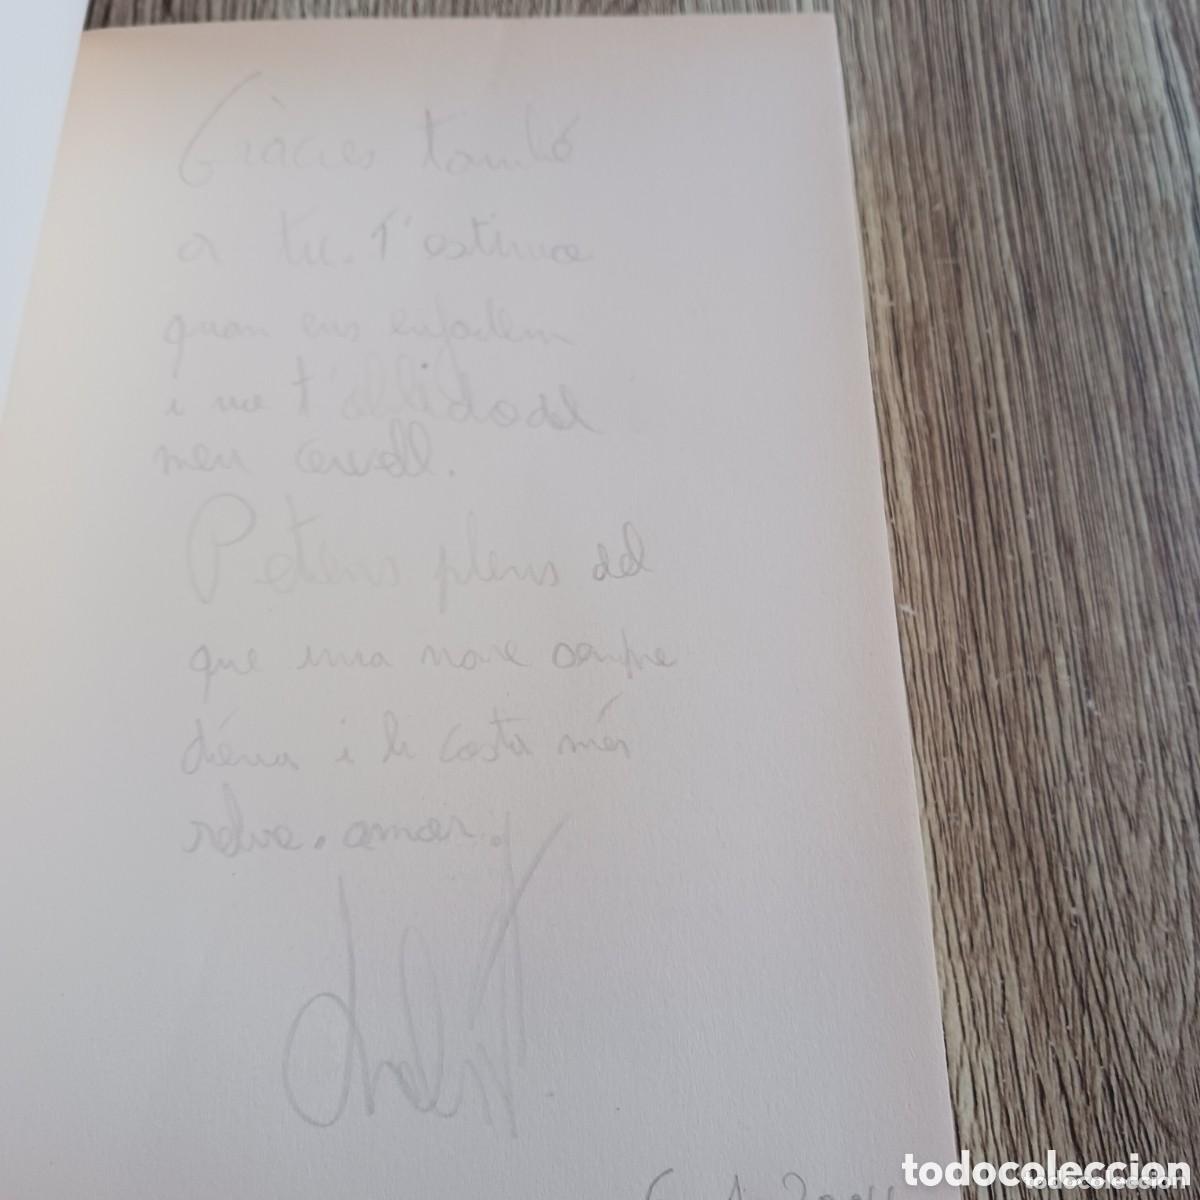 Gràcies també
a tu. T'estimo
quan ens enfadem
i no t'oblido del
meu cervell.
Petons plens del
que una mare sempre
dóna i li costa més
rebre. amor.
todocoleccion
todocoleccion